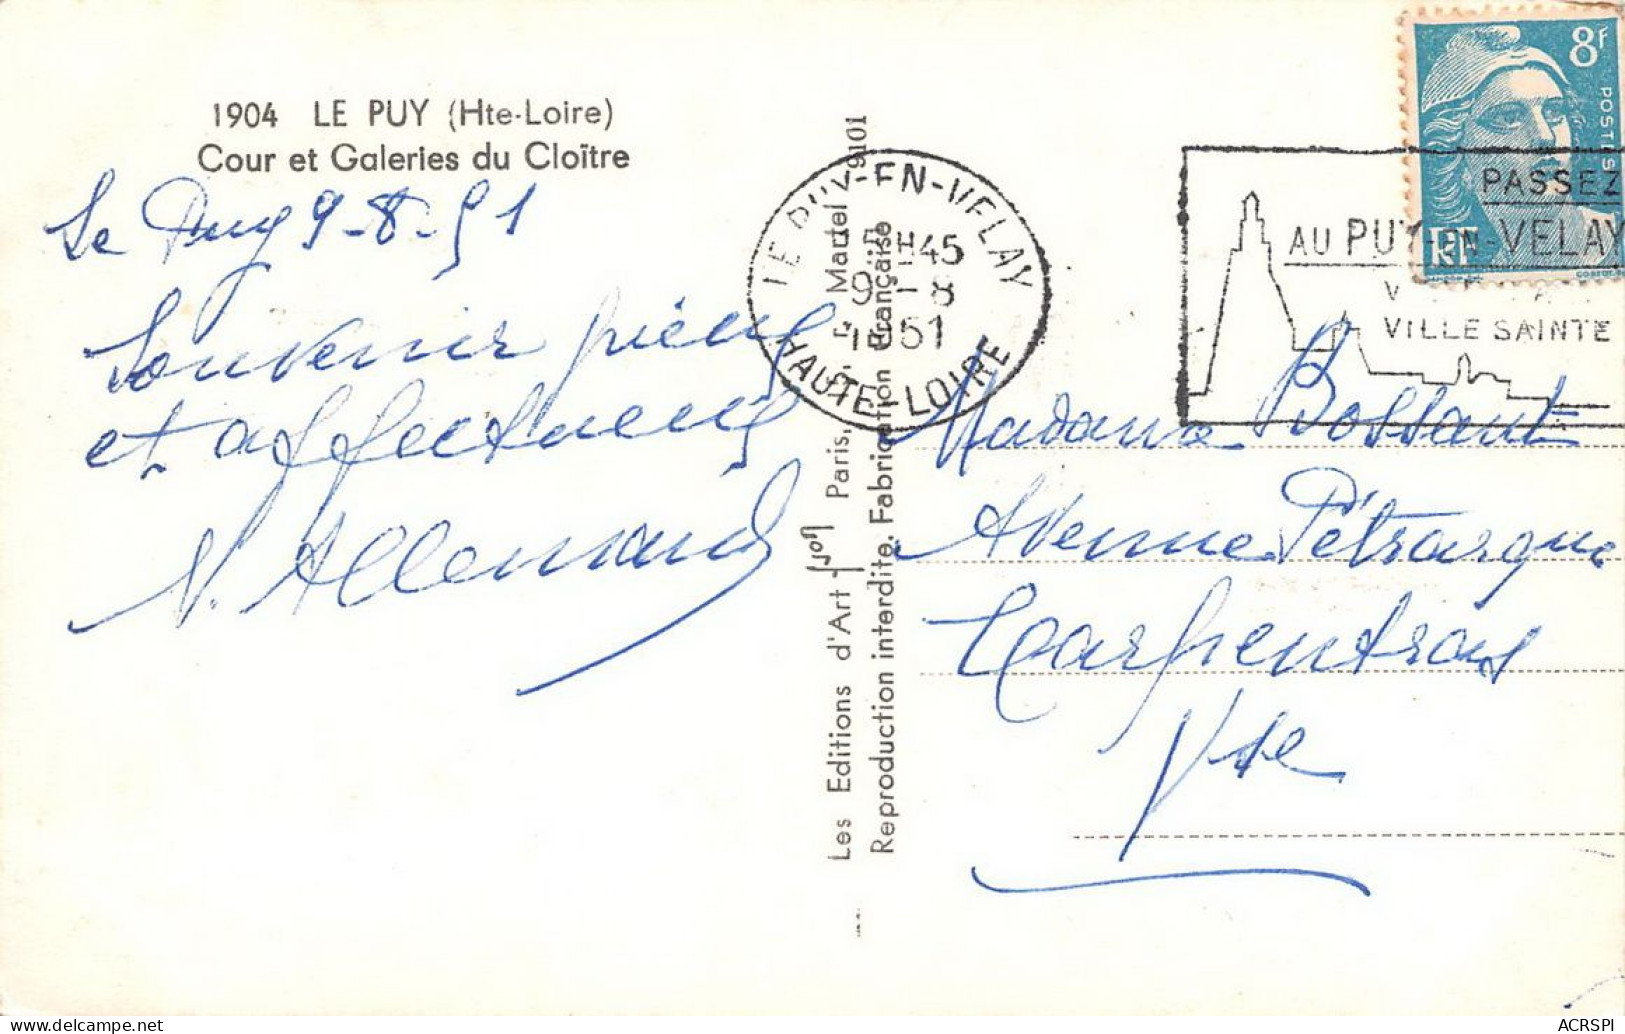 1904 LE PUY (Hte-Loire)
Cour et Galeries du Cloître
Le Puy 9-8-51
Souvenir pieux
et affectueux
V. Allemand
Les Editions d'Art Yvon Paris,
Reproduction interdite. Fabrication Française
LE PUY-EN-VELAY
H45
9-8
1951
HAUTE-LOIRE
8F
POSTES
RF
PASSEZ
AU PUY-EN-VELAY
VILLE SAINTE
Madame Bossant
Avenue Pétrarque
Carpentras
Vse
ACRSPI